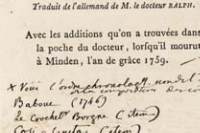 Traduit de l'allemand de M. le docteur RALPH.
Avec les additions qu'on a trouvées dans
la poche du docteur, lorsqu'il mourut
à Minden, l'an de grâce 1759.
x Voici l'ordre chronolog
Babouc (1746)
Le Crocheteur Borgne (item)
Cosi-Sancta (item)